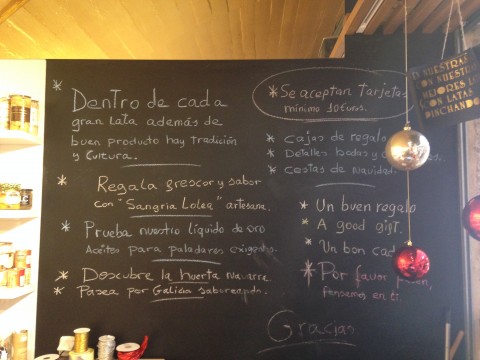 * Dentro de cada
gran lata además de
buen producto hay tradición
y cultura.
* Regala frescor y sabor
con "Sangria Lolea" artesana.
* Prueba nuestro líquido de oro
Aceites para paladares exigentes.
* Descubre la huerta navarra
* Pasea por Galicia saboreando.
* Se aceptan Tarjetas
mínimo 10 Euros.
* Cajas de regalo
* Detalles bodas y
* Cestas de navidad.
* Un buen regalo
* A good gift.
* Un bon
* Por favor
Gracias.
NUESTRAS
CON NUESTR
MEJORES
CON LATAS
PINCHANDO